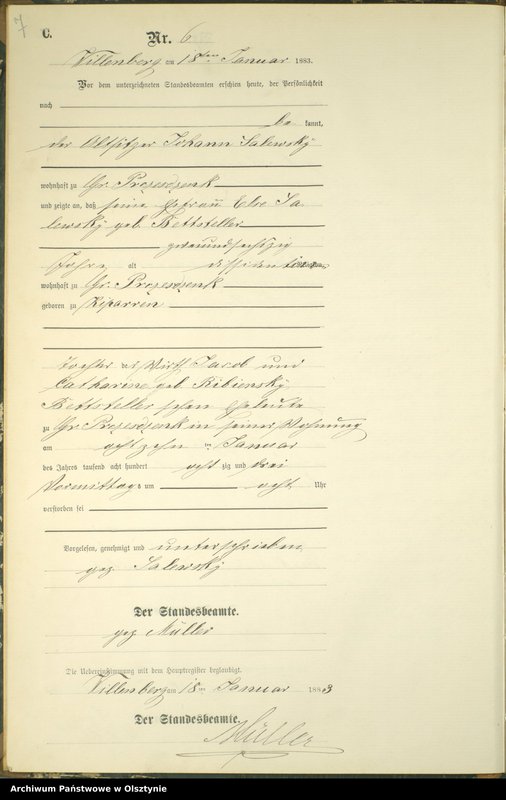 7
C.
Nr. 6
Willenberg am 18ten Januar 1883.
Vor dem unterzeichneten Standesbeamten erschien heute, der Persönlichkeit
nach
be kannt,
der Altsitzer Johann Salewsky
wohnhaft zu Gr.
und zeigte an, daß seine Ehefrau Else Sa
lewsky geb. Bettsteller
zweiundsechszig
Jahre alt
wohnhaft zu Gr.
geboren zu Kiparren
Tochter der Wirth Jacob und
Catharine geb. Bibiensky
Bettsteller'schen Eheleute
zu Gr. in seiner Wohnung
am achtzehn ten Januar
des Jahres tausend acht hundert acht zig und drei
Vormittags um acht Uhr
verstorben sei
Vorgelesen, genehmigt und unterschrieben
gez Salewsky
Der Standesbeamte.
gez Müller
Die Uebereinstimmung mit dem Hauptregister beglaubigt.
Willenberg am 18ten Januar 1883
Der Standesbeamte.
Müller
Archiwum Państwowe w Olsztynie